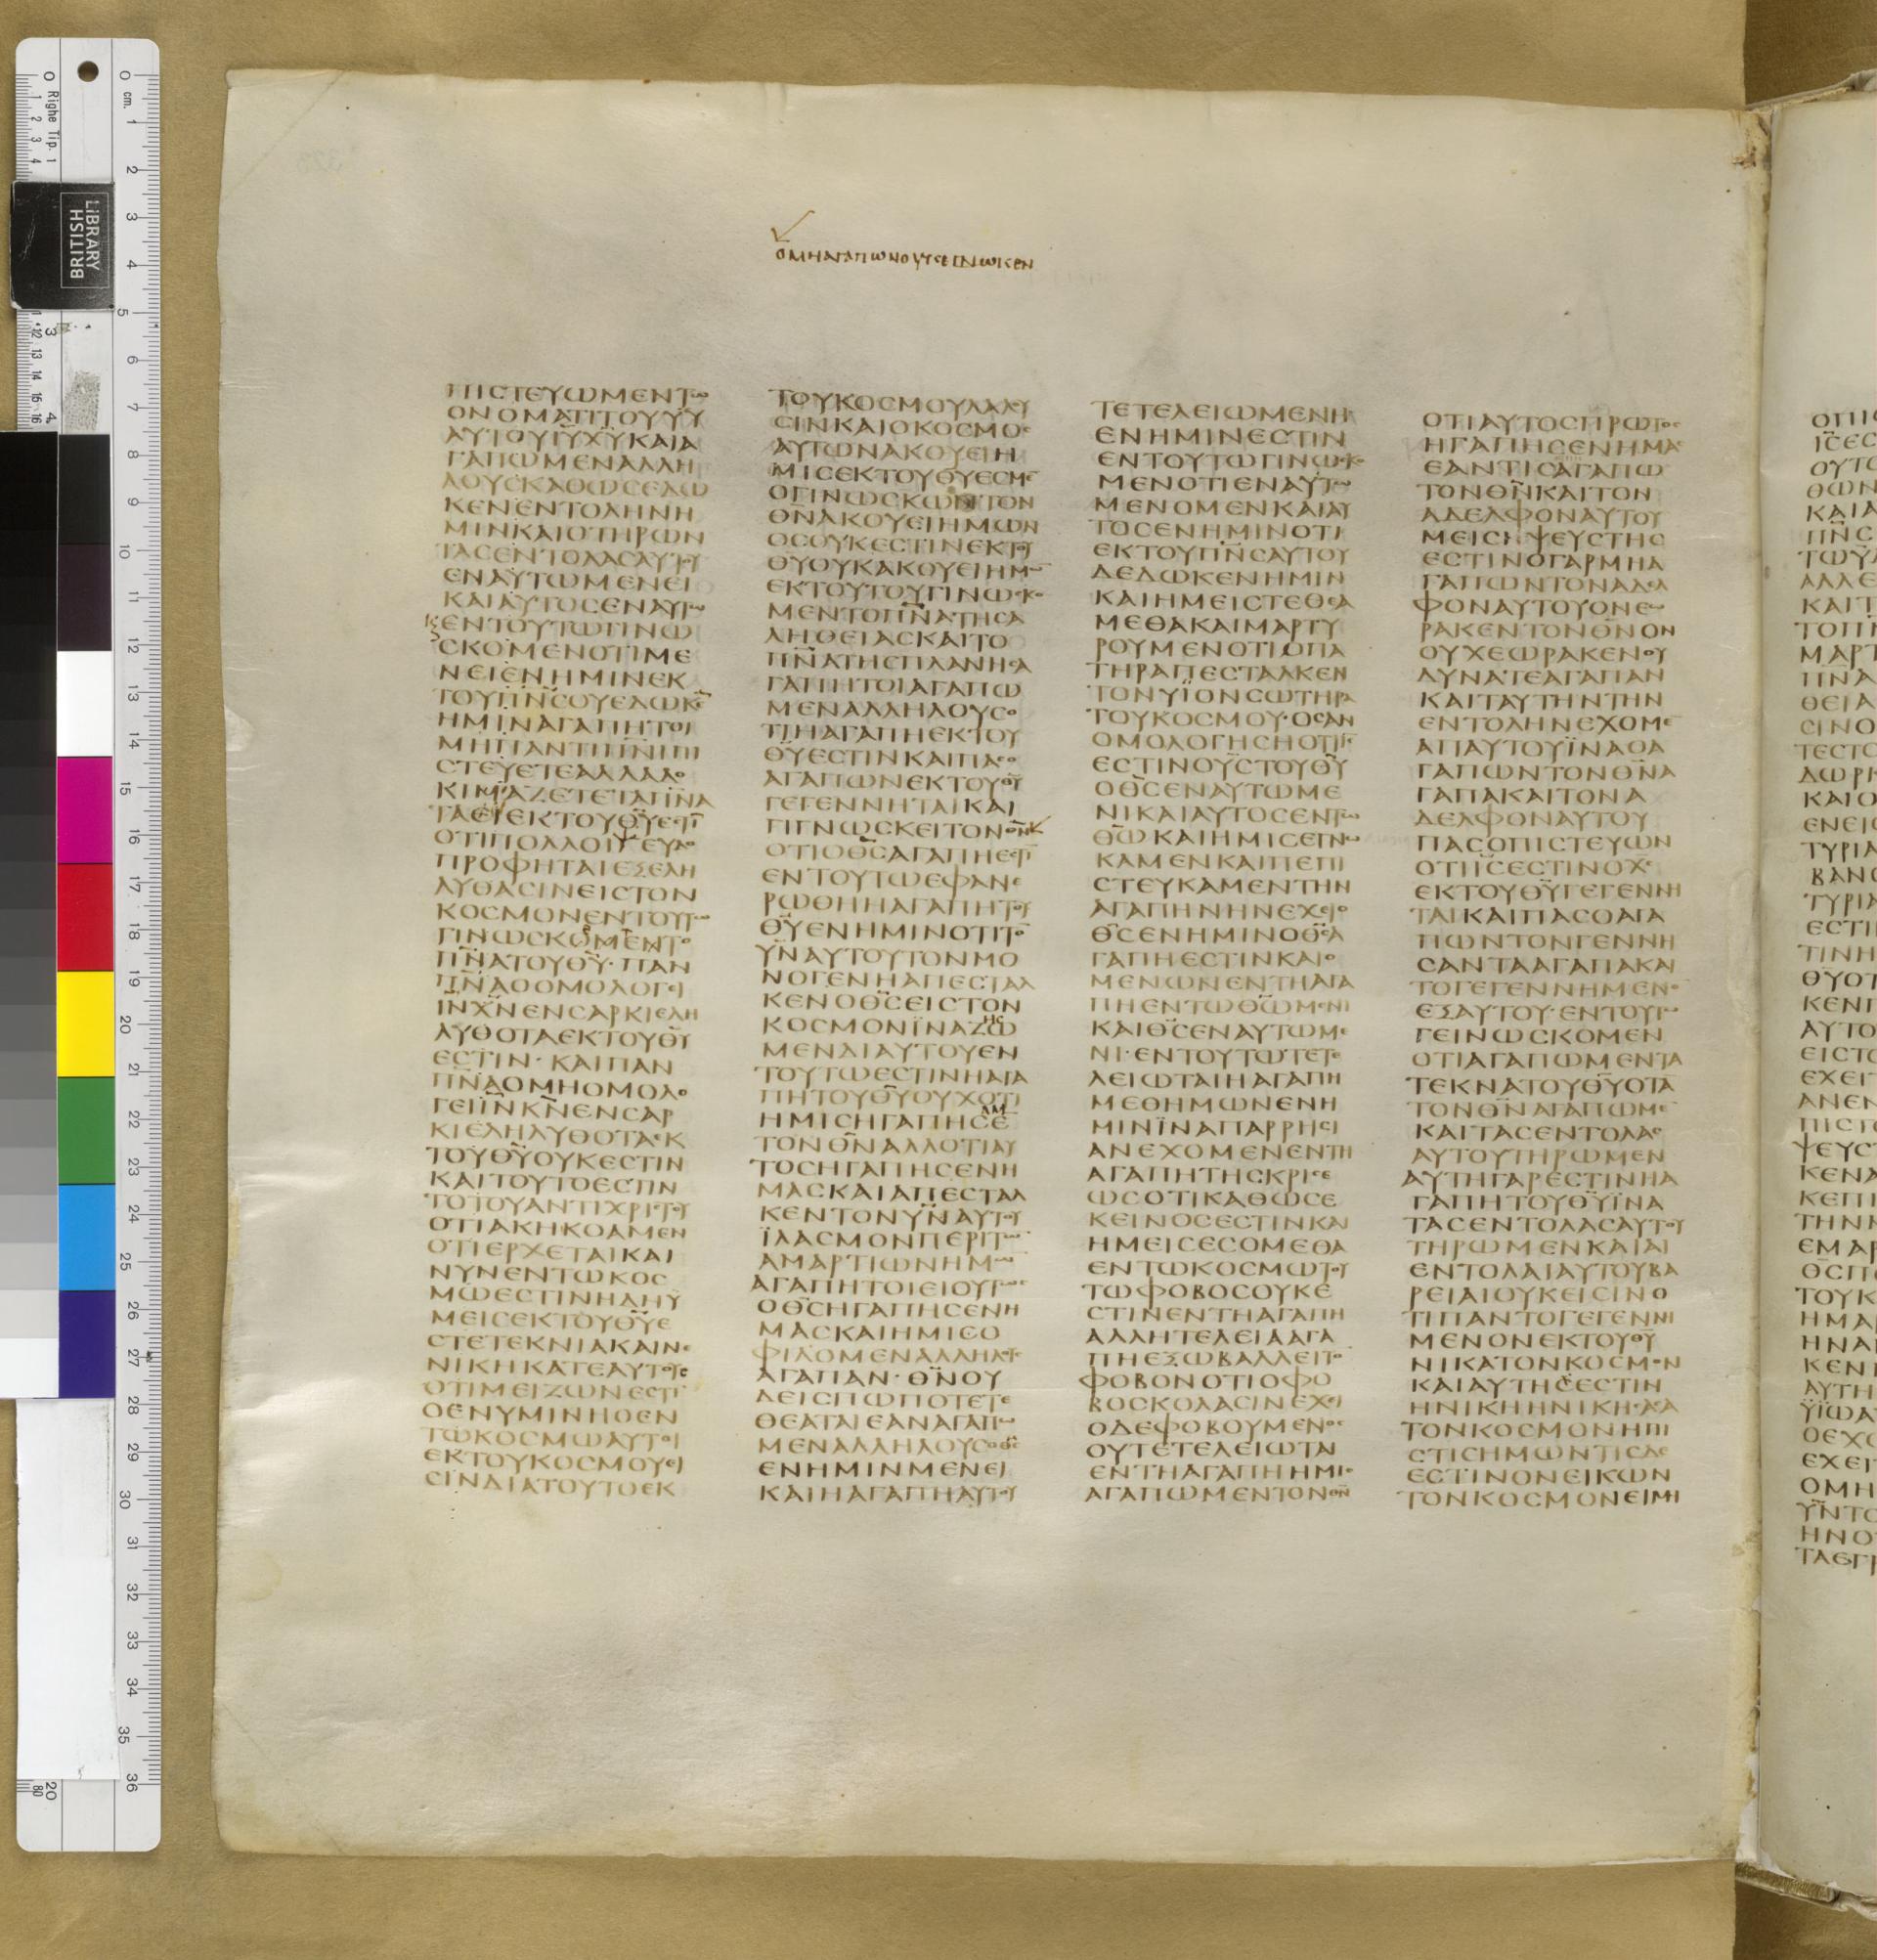 ΟΜΗΑΓΑΠΩΝΟΥΚΕΓΝΩΚΕΝ
ΠΙCΤΕΥΩΜΕΝΤΩ
ΟΝΟΜΑΤΙΤΟΥΥΥ
ΑΥΤΟΥΙΥΧΥΚΑΙΑ
ΓΑΠΩΜΕΝΑΛΛΗ
ΛΟΥCΚΑΘΩCΕΔΩ
ΚΕΝΕΝΤΟΛΗΝΗ
ΜΙΝΚΑΙΟΤΗΡΩΝ
ΤΑCΕΝΤΟΛΑCΑΥΤΟΥ
ΕΝΑΥΤΩΜΕΝΕΙ
ΚΑΙΑΥΤΟCΕΝΑΥΤΩ
ΕΝΤΟΥΤΩΓΙΝΩ
CΚΟΜΕΝΟΤΙΜΕ
ΝΕΙΕΝΗΜΙΝΕΚ
ΤΟΥΠΝCΟΥΕΔΩΚΕ
ΗΜΙΝΑΓΑΠΗΤΟΙ
ΜΗΠΑΝΤΙΠΝΙΠΙ
CΤΕΥΕΤΕΑΛΛΑΔΟ
ΚΙΜΑΖΕΤΕΤΑΠΝΑ
ΟΤΙΠΟΛΛΟΙΨΕΥΔΟ
ΠΡΟΦΗΤΑΙΕΞΕΛΗ
ΛΥΘΑCΙΝΕΙCΤΟΝ
ΚΟCΜΟΝΕΝΤΟΥΤΩ
ΓΙΝΩCΚΟΜΕΝΤΟ
ΠΝΑΤΟΥΘΥ·ΠΑΝ
ΠΝΑΟΟΜΟΛΟΓΕΙ
ΙΝΧΝΕΝCΑΡΚΙΕΛΗ
ΛΥΘΟΤΑΕΚΤΟΥΘΥ
ΕCΤΙΝ·ΚΑΙΠΑΝ
ΠΝΑΟΜΗΟΜΟΛΟ
ΓΕΙΙΝΚΝΕΝCΑΡ
ΚΙΕΛΗΛΥΘΟΤΑΕΚ
ΤΟΥΘΥΟΥΚΕCΤΙΝ
ΚΑΙΤΟΥΤΟΕCΤΙΝ
ΤΟΤΟΥΑΝΤΙΧΡΙCΤΟΥ
ΟΤΙΑΚΗΚΟΑΜΕΝ
ΟΤΙΕΡΧΕΤΑΙΚΑΙ
ΝΥΝΕΝΤΩΚΟC
ΜΩΕCΤΙΝΗΔΗΥ
ΜΕΙCΕΚΤΟΥΘΥΕ
CΤΕΤΕΚΝΙΑΚΑΙΝΕ
ΝΙΚΗΚΑΤΕΑΥΤΟΥC
ΟΤΙΜΕΙΖΩΝΕCΤΙ
ΟΕΝΥΜΙΝΗΟΕΝ
ΤΩΚΟCΜΩΑΥΤΟΙ
ΕΚΤΟΥΚΟCΜΟΥΕΙ
CΙΝΔΙΑΤΟΥΤΟΕΚ
ΤΟΥΚΟCΜΟΥΛΑΛΟΥ
CΙΝΚΑΙΟΚΟCΜΟC
ΑΥΤΩΝΑΚΟΥΕΙΗ
ΜΙCΕΚΤΟΥΘΥΕCΜΕ
ΟΓΙΝΩCΚΩΝΤΟΝ
ΘΝΑΚΟΥΕΙΗΜΩΝ
ΟCΟΥΚΕCΤΙΝΕΚΤΟΥ
ΘΥΟΥΚΑΚΟΥΕΙΗΜΩ
ΕΚΤΟΥΤΟΥΓΙΝΩCΚΟ
ΜΕΝΤΟΠΝΑΤΗCΑ
ΛΗΘΕΙΑCΚΑΙΤΟ
ΠΝΑΤΗCΠΛΑΝΗCΑ
ΓΑΠΗΤΟΙΑΓΑΠΩ
ΜΕΝΑΛΛΗΛΟΥCΟ
ΤΙΗΑΓΑΠΗΕΚΤΟΥ
ΘΥΕCΤΙΝΚΑΙΠΑCΟ
ΑΓΑΠΩΝΕΚΤΟΥΘΥ
ΓΕΓΕΝΝΗΤΑΙΚΑΙ
ΓΙΓΝΩCΚΕΙΤΟΝΘΝ
ΟΤΙΟΘCΑΓΑΠΗΕCΤΙ
ΕΝΤΟΥΤΩΕΦΑΝΕ
ΡΩΘΗΗΑΓΑΠΗΤΟΥ
ΘΥΕΝΗΜΙΝΟΤΙΤΟ
ΥΝΑΥΤΟΥΤΟΝΜΟ
ΝΟΓΕΝΗΑΠΕCΤΑΛ
ΚΕΝΟΘCΕΙCΤΟΝ
ΚΟCΜΟΝΙΝΑΖΩ
ΜΕΝΔΙΑΥΤΟΥΕΝ
ΤΟΥΤΩΕCΤΙΝΗΑΓΑ
ΠΗΤΟΥΘΥΟΥΧΟΤΙ
ΗΜΙCΗΓΑΠΗCΕ
ΤΟΝΘΝΑΛΛΟΤΙΑΥ
ΤΟCΗΓΑΠΗCΕΝΗ
ΜΑCΚΑΙΑΠΕCΤΑΛ
ΚΕΝΤΟΝΥΝΑΥΤΟΥ
ΙΛΑCΜΟΝΠΕΡΙΤΩ
ΑΜΑΡΤΙΩΝΗΜΩ
ΑΓΑΠΗΤΟΙΕΙΟΥΤΩC
ΟΘCΗΓΑΠΗCΕΝΗ
ΜΑCΚΑΙΗΜΙCΟ
ΦΙΛΟΜΕΝΑΛΛΗΛΟΥC
ΑΓΑΠΑΝ·ΘΝΟΥ
ΔΕΙCΠΩΠΟΤΕΤΕ
ΘΕΑΤΑΙΕΑΝΑΓΑΠΩ
ΜΕΝΑΛΛΗΛΟΥCΟΘC
ΕΝΗΜΙΝΜΕΝΕΙ
ΚΑΙΗΑΓΑΠΗΑΥΤΟΥ
ΤΕΤΕΛΕΙΩΜΕΝΗ
ΕΝΗΜΙΝΕCΤΙΝ
ΕΝΤΟΥΤΩΓΙΝΩCΚΟ
ΜΕΝΟΤΙΕΝΑΥΤΩ
ΜΕΝΟΜΕΝΚΑΙΑΥ
ΤΟCΕΝΗΜΙΝΟΤΙ
ΕΚΤΟΥΠΝCΑΥΤΟΥ
ΔΕΔΩΚΕΝΗΜΙΝ
ΚΑΙΗΜΕΙCΤΕΘΕΑ
ΜΕΘΑΚΑΙΜΑΡΤΥ
ΡΟΥΜΕΝΟΤΙΟΠΑ
ΤΗΡΑΠΕCΤΑΛΚΕΝ
ΤΟΝΥΙΟΝCΩΤΗΡΑ
ΤΟΥΚΟCΜΟΥ·ΟCΑΝ
ΟΜΟΛΟΓΗCΗΟΤΙΙC
ΕCΤΙΝΟΥCΤΟΥΘΥ
ΟΘCΕΝΑΥΤΩΜΕ
ΝΙΚΑΙΑΥΤΟCΕΝΤΩ
ΘΩΚΑΙΗΜΙCΕΓΝΩ
ΚΑΜΕΝΚΑΙΠΕΠΙ
CΤΕΥΚΑΜΕΝΤΗΝ
ΑΓΑΠΗΝΗΝΕΧΕΙΟ
ΘCΕΝΗΜΙΝΟΘCΑ
ΓΑΠΗΕCΤΙΝΚΑΙΟ
ΜΕΝΩΝΕΝΤΗΑΓΑ
ΠΗΕΝΤΩΘΩΜΕΝΙ
ΚΑΙΘCΕΝΑΥΤΩΜΕ
ΝΙ·ΕΝΤΟΥΤΩΤΕΤΕ
ΛΕΙΩΤΑΙΗΑΓΑΠΗ
ΜΕΘΗΜΩΝΕΝΗ
ΜΙΝΙΝΑΠΑΡΡΗCΙ
ΑΝΕΧΟΜΕΝΕΝΤΗ
ΑΓΑΠΗΤΗCΚΡΙCΕ
ΩCΟΤΙΚΑΘΩCΕ
ΚΕΙΝΟCΕCΤΙΝΚΑΙ
ΗΜΕΙCΕCΟΜΕΘΑ
ΕΝΤΩΚΟCΜΩΤΟΥ
ΤΩΦΟΒΟCΟΥΚΕ
CΤΙΝΕΝΤΗΑΓΑΠΗ
ΑΛΛΗΤΕΛΕΙΑΑΓΑ
ΠΗΕΞΩΒΑΛΛΕΙΤΟ
ΦΟΒΟΝΟΤΙΟΦΟ
ΒΟCΚΟΛΑCΙΝΕΧΕΙ
ΟΔΕΦΟΒΟΥΜΕΝΟC
ΟΥΤΕΤΕΛΕΙΩΤΑΙ
ΕΝΤΗΑΓΑΠΗΗΜΙC
ΑΓΑΠΩΜΕΝΤΟΝΘΝ
ΟΤΙΑΥΤΟCΠΡΩΤΟC
ΗΓΑΠΗCΕΝΗΜΑC
ΕΑΝΤΙCΑΓΑΠΩ
ΤΟΝΘΝΚΑΙΤΟΝ
ΑΔΕΛΦΟΝΑΥΤΟΥ
ΜΕΙCΗΨΕΥCΤΗC
ΕCΤΙΝΟΓΑΡΜΗΑ
ΓΑΠΩΝΤΟΝΑΔΕΛ
ΦΟΝΑΥΤΟΥΟΝΕΩ
ΡΑΚΕΝΤΟΝΘΝΟΝ
ΟΥΧΕΩΡΑΚΕΝΟΥ
ΔΥΝΑΤΕΑΓΑΠΑΝ
ΚΑΙΤΑΥΤΗΝΤΗΝ
ΕΝΤΟΛΗΝΕΧΟΜΕ
ΑΠΑΥΤΟΥΙΝΑΟΑ
ΓΑΠΩΝΤΟΝΘΝΑ
ΓΑΠΑΚΑΙΤΟΝΑ
ΔΕΛΦΟΝΑΥΤΟΥ
ΠΑCΟΠΙCΤΕΥΩΝ
ΟΤΙΙCΕCΤΙΝΟΧC
ΕΚΤΟΥΘΥΓΕΓΕΝΝΗ
ΤΑΙΚΑΙΠΑCΟΑΓΑ
ΠΩΝΤΟΝΓΕΝΝΗ
CΑΝΤΑΑΓΑΠΑΚΑΙ
ΤΟΓΕΓΕΝΝΗΜΕΝΟ
ΕΞΑΥΤΟΥ·ΕΝΤΟΥΤΩ
ΓΕΙΝΩCΚΟΜΕΝ
ΟΤΙΑΓΑΠΩΜΕΝΤΑ
ΤΕΚΝΑΤΟΥΘΥΟΤΑ
ΤΟΝΘΝΑΓΑΠΩΜΕ
ΚΑΙΤΑCΕΝΤΟΛΑC
ΑΥΤΟΥΤΗΡΩΜΕΝ
ΑΥΤΗΓΑΡΕCΤΙΝΗΑ
ΓΑΠΗΤΟΥΘΥΙΝΑ
ΤΑCΕΝΤΟΛΑCΑΥΤΟΥ
ΤΗΡΩΜΕΝΚΑΙΑΙ
ΕΝΤΟΛΑΙΑΥΤΟΥΒΑ
ΡΕΙΑΙΟΥΚΕΙCΙΝΟ
ΤΙΠΑΝΤΟΓΕΓΕΝΝΗ
ΜΕΝΟΝΕΚΤΟΥΘΥ
ΝΙΚΑΤΟΝΚΟCΜΟΝ
ΚΑΙΑΥΤΗCΕCΤΙΝ
ΗΝΙΚΗΗΝΙΚΗCΑCΑ
ΤΟΝΚΟCΜΟΝΗΠΙ
CΤΙCΗΜΩΝΤΙCΔΕ
ΕCΤΙΝΟΝΕΙΚΩΝ
ΤΟΝΚΟCΜΟΝΕΙΜΗ